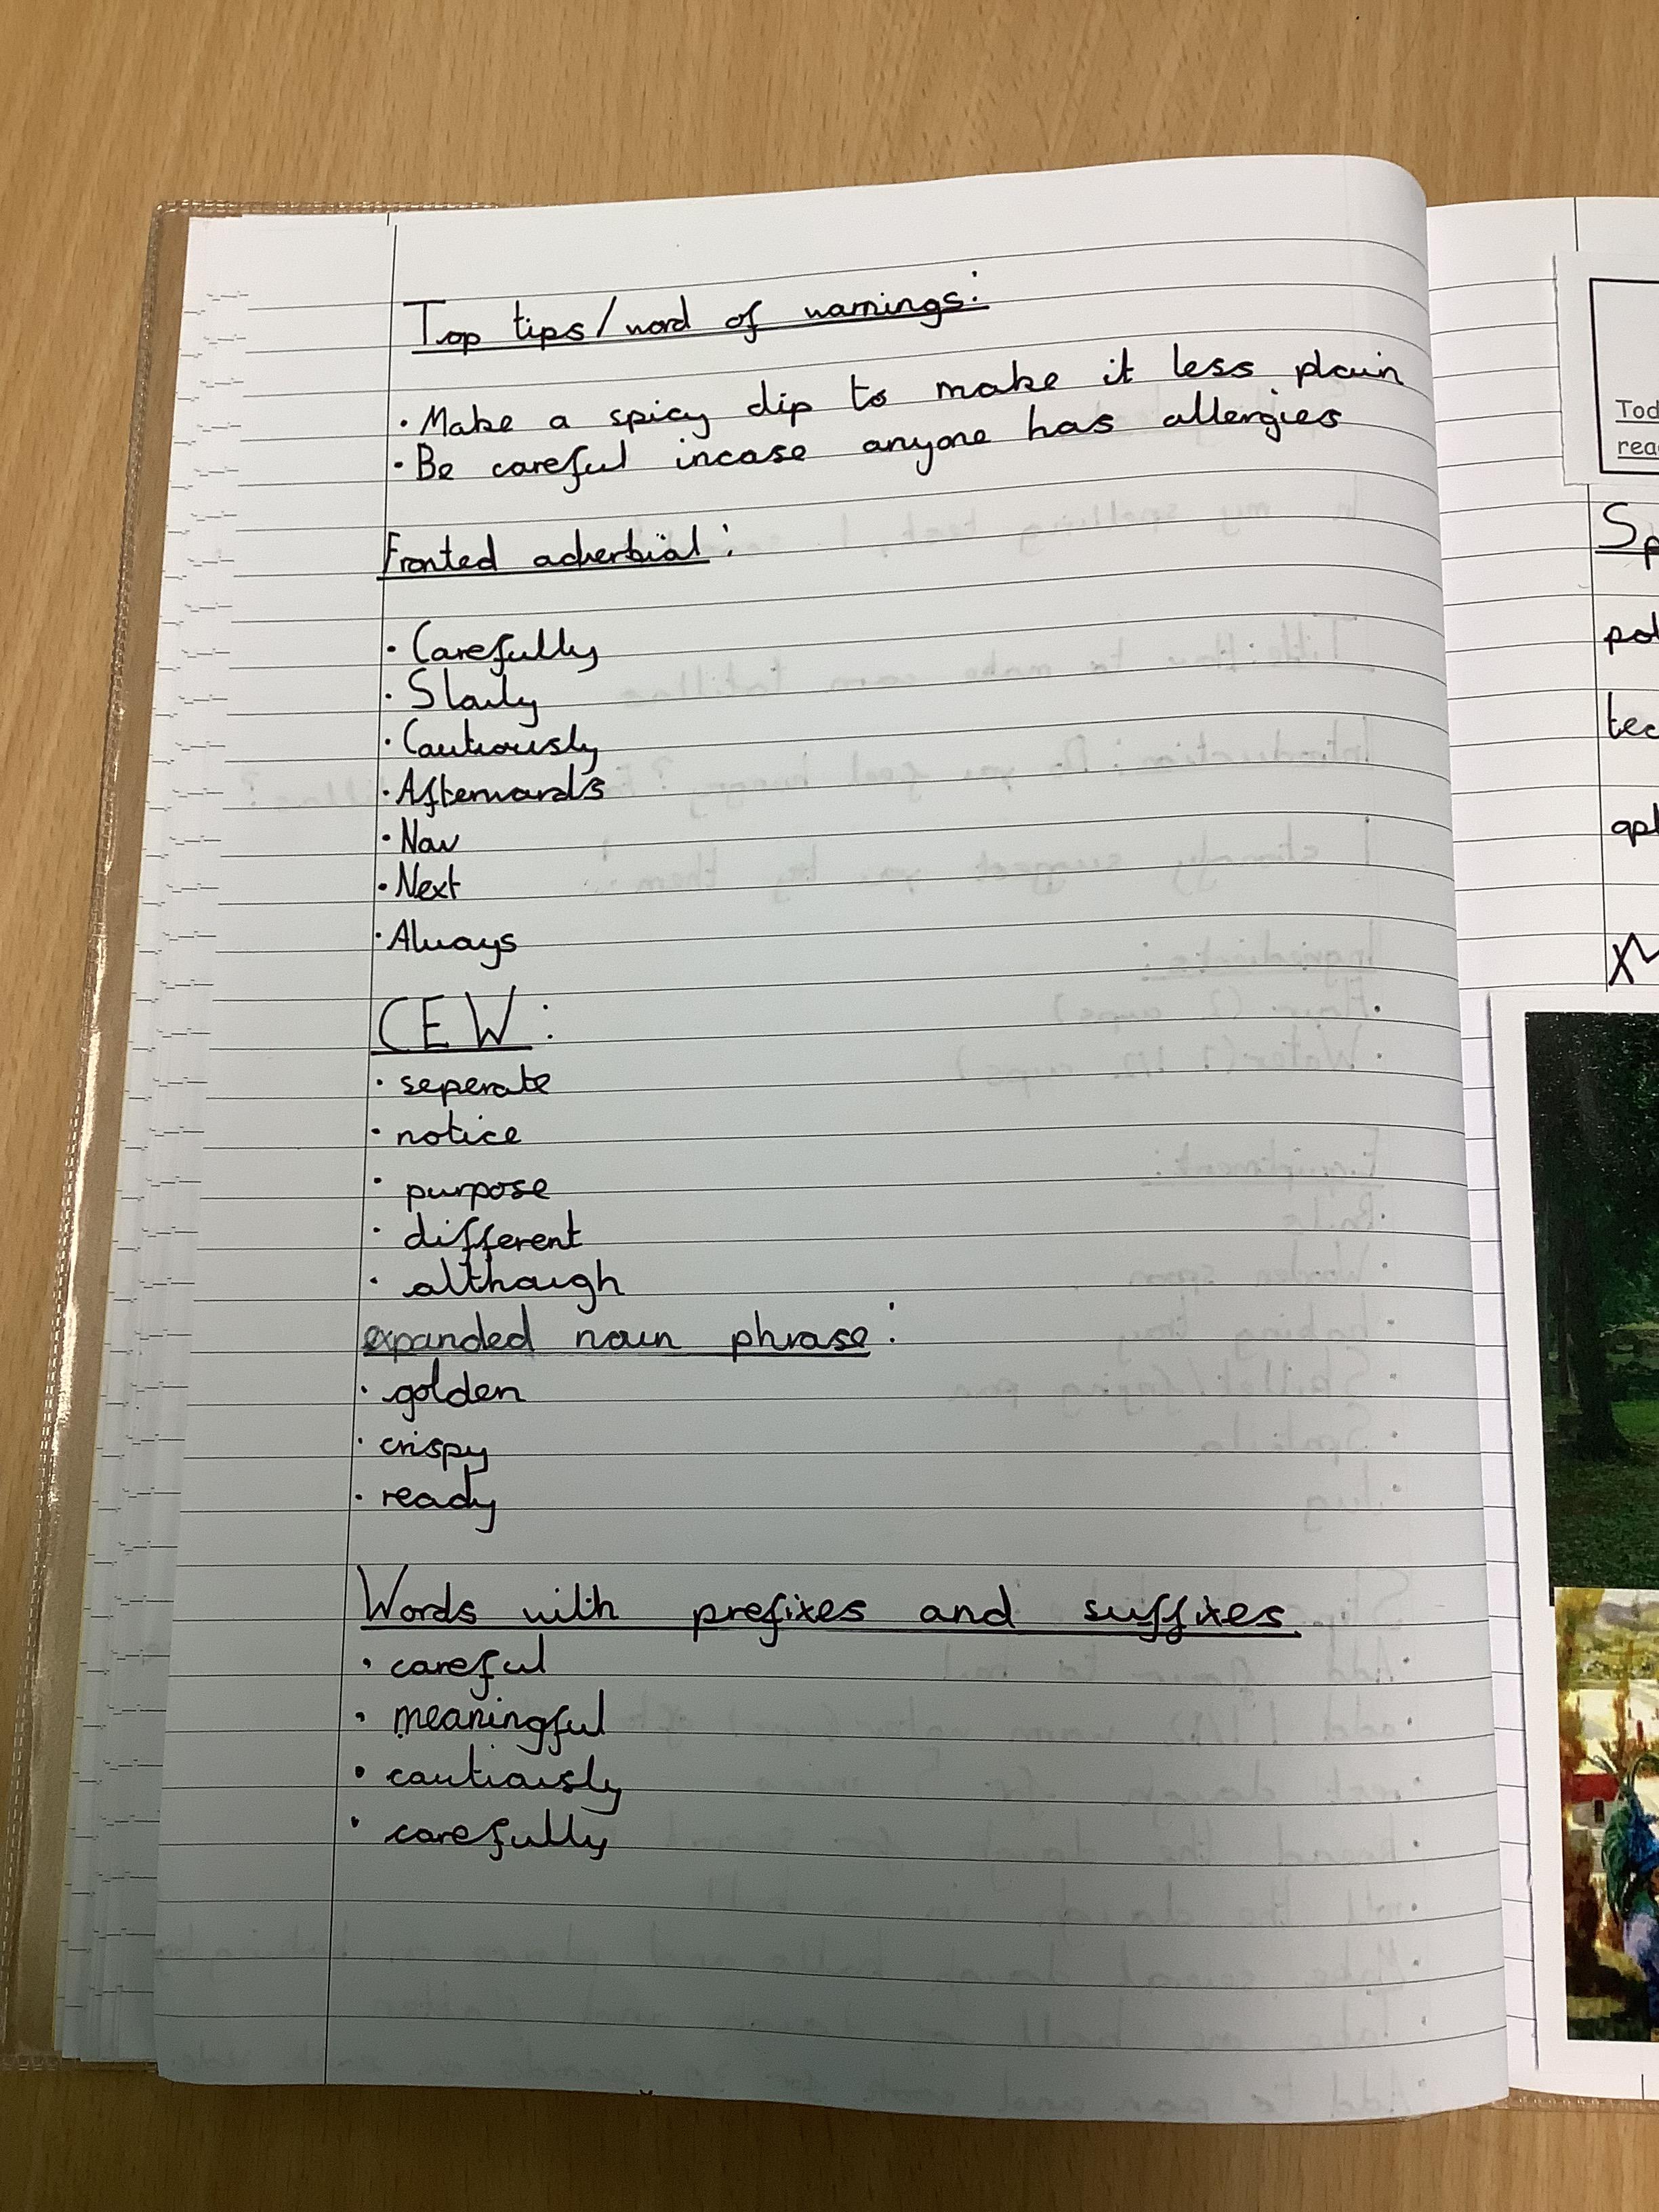 Top tips/word of warnings:
• Make a spicy dip to make it less plain
• Be careful incase anyone has allergies
Fronted adverbial:
• Carefully
• Slowly
• Cautiously
• Afterwards
• Now
• Next
• Always
CEW:
• seperate
• notice
• purpose
• different
• although
expanded noun phrase:
• golden
• crispy
• ready
Words with prefixes and suffixes.
• careful
• meaningful
• cautiously
• carefully